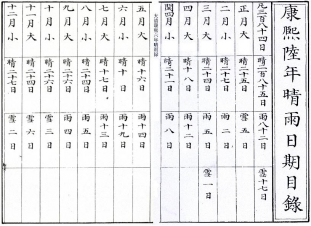 康熙陸年晴雨日期目錄
凡三百八十四日 晴二百八十五日 雨八十二日 雪十七日
正月大 晴二十五日 雪五日
二月小 晴二十七日 雨二日
三月大 晴二十四日 雨五日 雪一日
四月大 晴十八日 雨十二日
閏四月小 晴二十一日 雨八日
五月大 晴十六日 雨十四日
六月小 晴十日 雨十九日
七月大 晴十七日 雨十三日
八月小 晴二十四日 雨五日
九月大 晴二十六日 雨四日
十月小 晴二十六日 雪三日
十一月大 晴二十四日 雪六日
十二月小 晴二十七日 雪二日